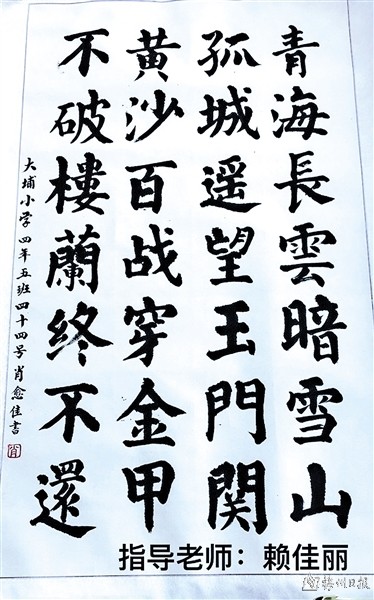 青海長雲暗雪山
孤城遥望玉門関
黄沙百战穿金甲
不破樓蘭終不還
大埔小学四年五班四十四号肖愈佳書
肖
指导老师：赖佳丽
梅州日报